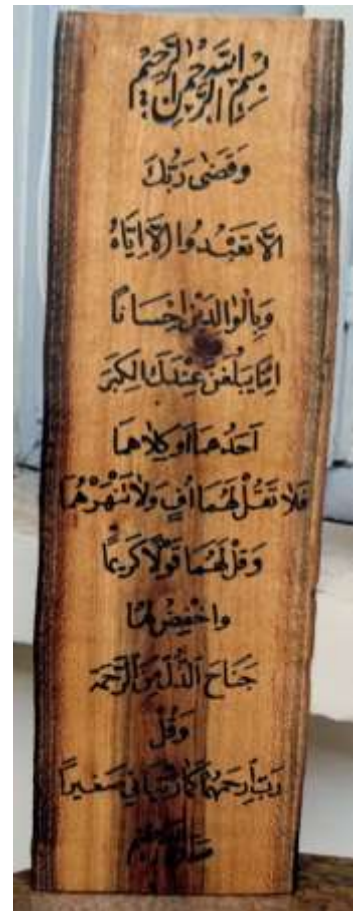 بسم الله الرحمن الرحيم
وَقَضٰى رَبُّكَ
اَلَّا تَعْبُدُوا اِلَّا اِيَّاهُ
وَبِالْوٰالِدَيْنِ اِحْسَانًا
اِمَّا يَبْلُغَنَّ عِنْدَكَ الْكِبَرَ
اَحَدُهُمَا اَوْ كِلَاهُمَا
فَلَا تَقُلْ لَهُمَا اُفٍّ وَلَا تَنْهَرْهُمَا
وَقُلْ لَهُمَا قَوْلًا كَرِيمًا
وَاخْفِضْ لَهُمَا
جَنَاحَ الذُّلِّ مِنَ الرَّحْمَةِ
وَقُلْ
رَبِّ ارْحَمْهُمَا كَمَا رَبَّيَانِي صَغِيرًا
صدق الله العظيم